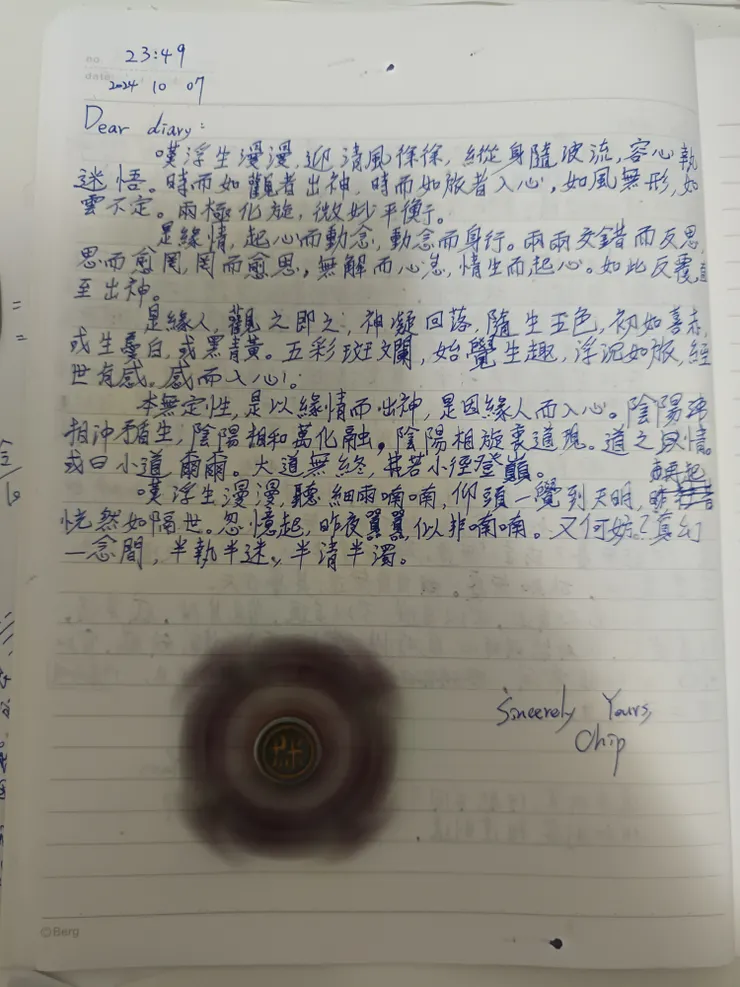 no
23:49
date
2024 10 07
Dear diary:
嘆浮生漫漫,迎清風徐徐,縱從身隨波流,容心執
迷悟。時而如觀者出神,時而如旅者入心,如風無形,如
雲不定。兩極化旋,微妙平衡。
是緣情,起心而動念,動念而身行。兩兩交錯而反思,
思而愈罔,罔而愈思,無解而心怠,情生而起心。如此反覆,直
至出神。
是緣人,觀之即之,神凝回落,隨生五色,初如喜赤,
或生憂白,或黑青黃。五彩斑斕,始覺生趣,浮沉如旅,經
世有感。感而入心。
本無定性,是以緣情而出神,是因緣人而入心。陰陽
相沖矛盾生,陰陽相和萬化融,陰陽相旋裏道現。道之
或曰小道,爾爾。大道無終,若小徑登巔。
嘆浮生漫漫,聽細雨喃喃,仰頭一覺到天明,再起
恍然如隔世。忽憶起,昨夜翼翼,似非喃喃。又何妨?真幻
一念間,半執半迷,半清半濁。
Sincerely Yours,
Chip
©Berg